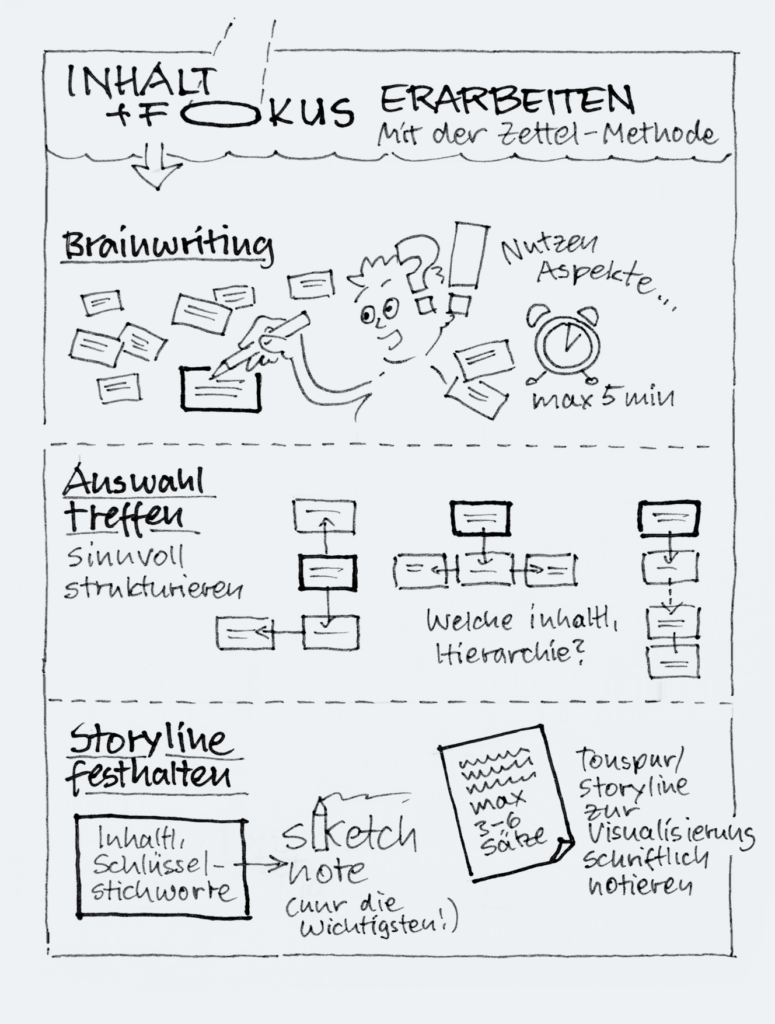 INHALT
+ FOKUS
ERARBEITEN
Mit der Zettel-Methode
Brainwriting
?!
Nutzen
Aspekte...
max 5 min
Auswahl
treffen
sinnvoll
strukturieren
Welche inhaltl.
Hierarchie?
Storyline
festhalten
Inhaltl.
Schlüssel-
stichworte
sketch
note
(nur die
Wichtigsten!)
max
3-6
Sätze
Tonspur/
Storyline
zur
Visualisierung
schriftlich
notieren